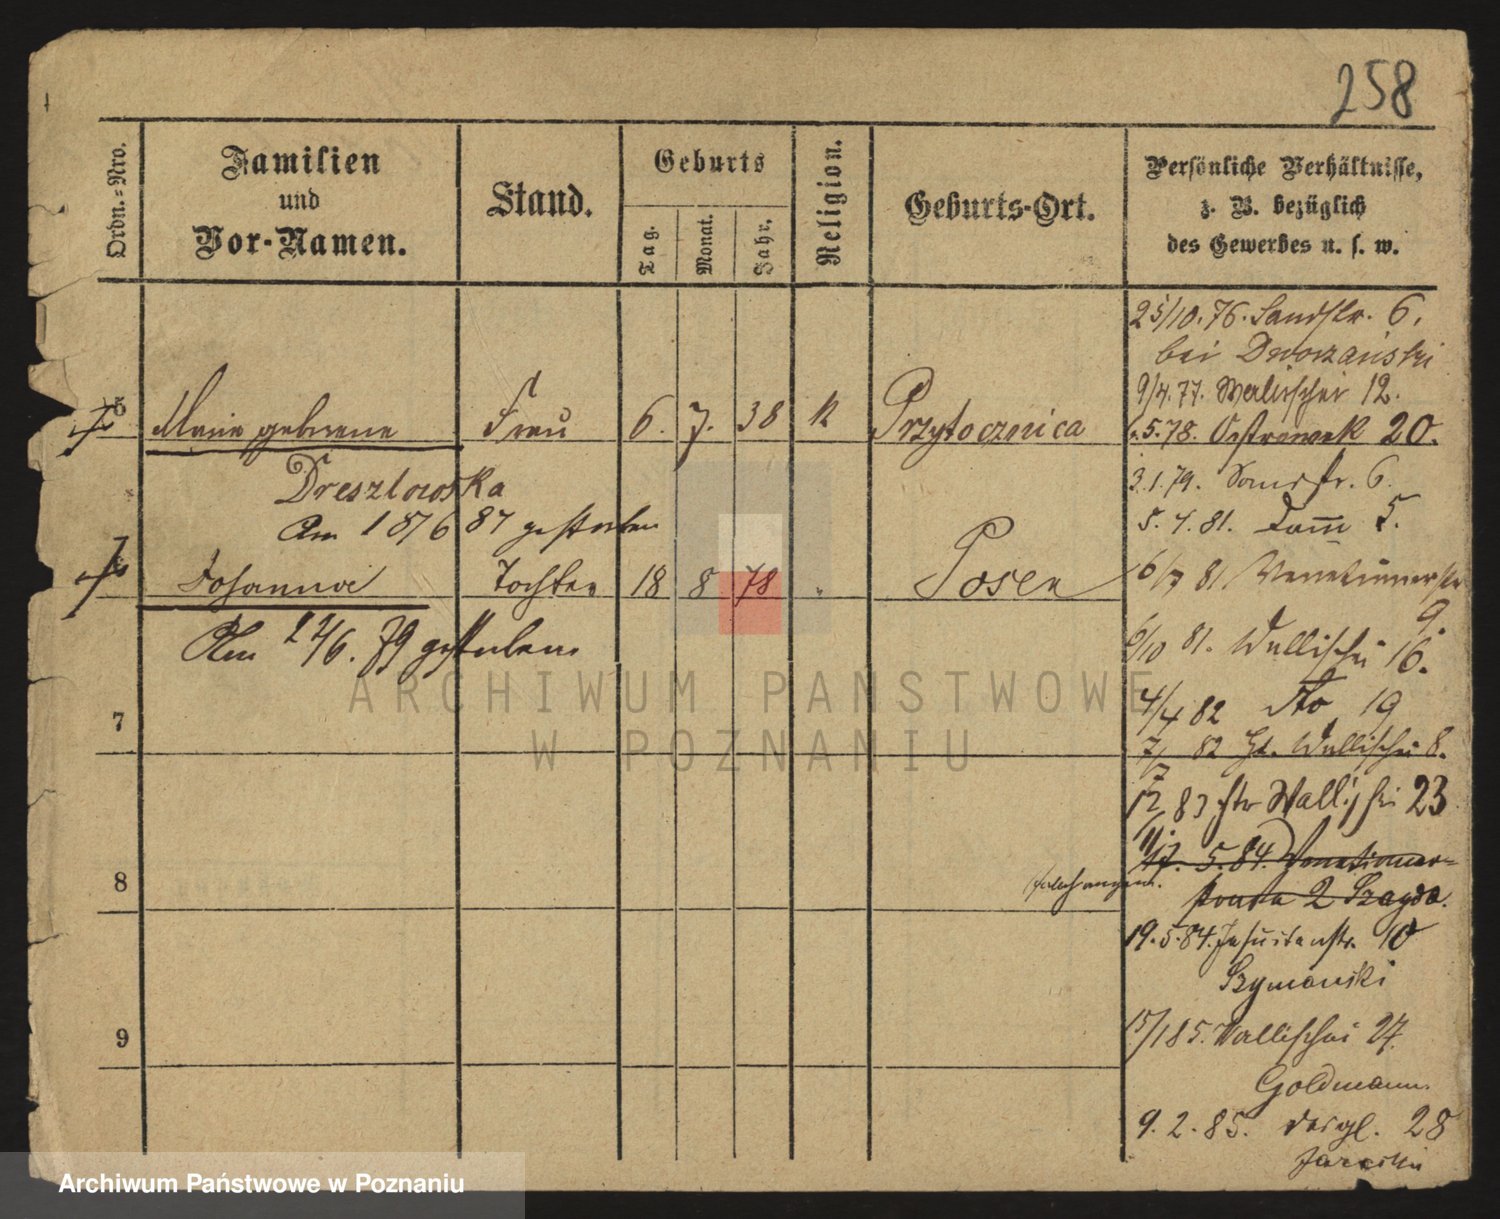 258
Ordn.-Nro.
Familien
und
Vor-Namen.
Stand.
Geburts
Tag.
Monat.
Jahr.
Religion.
Geburts-Ort.
Persönliche Verhältnisse,
z. B. bezüglich
des Gewerbes u. s. w.
25/10. 76. Sandstr. 6.
bei Dworzański
5 Marie geborene Frau 6. 7. 38 k Przytocznica
Dreszlowska
Am 18/6 87 gestorben
9/4. 77. Wallischei 12.
.5. 78. Ostrowek 20.
3. 1. 79. 6.
5. 4. 81. Damm 5.
Johanna Tochter 18 8 78 " Posen
Am 22/6. 79 gestorben
6/7 81. Venetianerstr
9.
6/10 81. Wallischei 16.
4/4 82 dto 19
7
7/7 82 Gr. Wallischei 8.
12/11. 83 Wallischei 23
8
17. 5. 84. Venetianer-
2 Szayda.
19. 5. 84. Jesuitenstr. 10
Szymanski
9
15/1 85. Wallischei 27.
Goldmann.
9. 2. 85. desgl. 28
ARCHIWUM PAŃSTWOWE
W POZNANIU
Archiwum Państwowe w Poznaniu